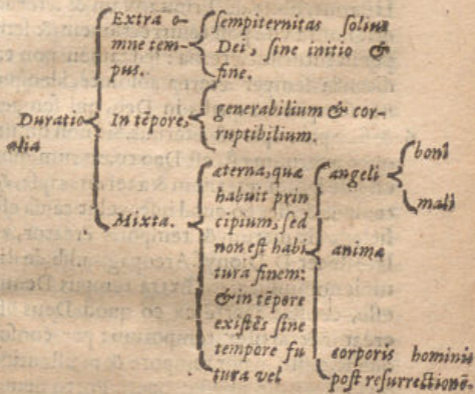 Duratio
alia
Extra o-
mne tem-
pus.
ſempiternitas ſolius
Dei, ſine initio &
fine.
In tẽpore,
generabilium & cor-
ruptibilium.
Mixta.
æterna, quæ
habuit prin
cipium, ſed
non eſt habi
tura finem:
& in tẽpore
exiſtẽs ſine
tempore fu
tura vel
angeli
boni
mali
animæ
corporis hominis
poſt reſurrectionẽ.